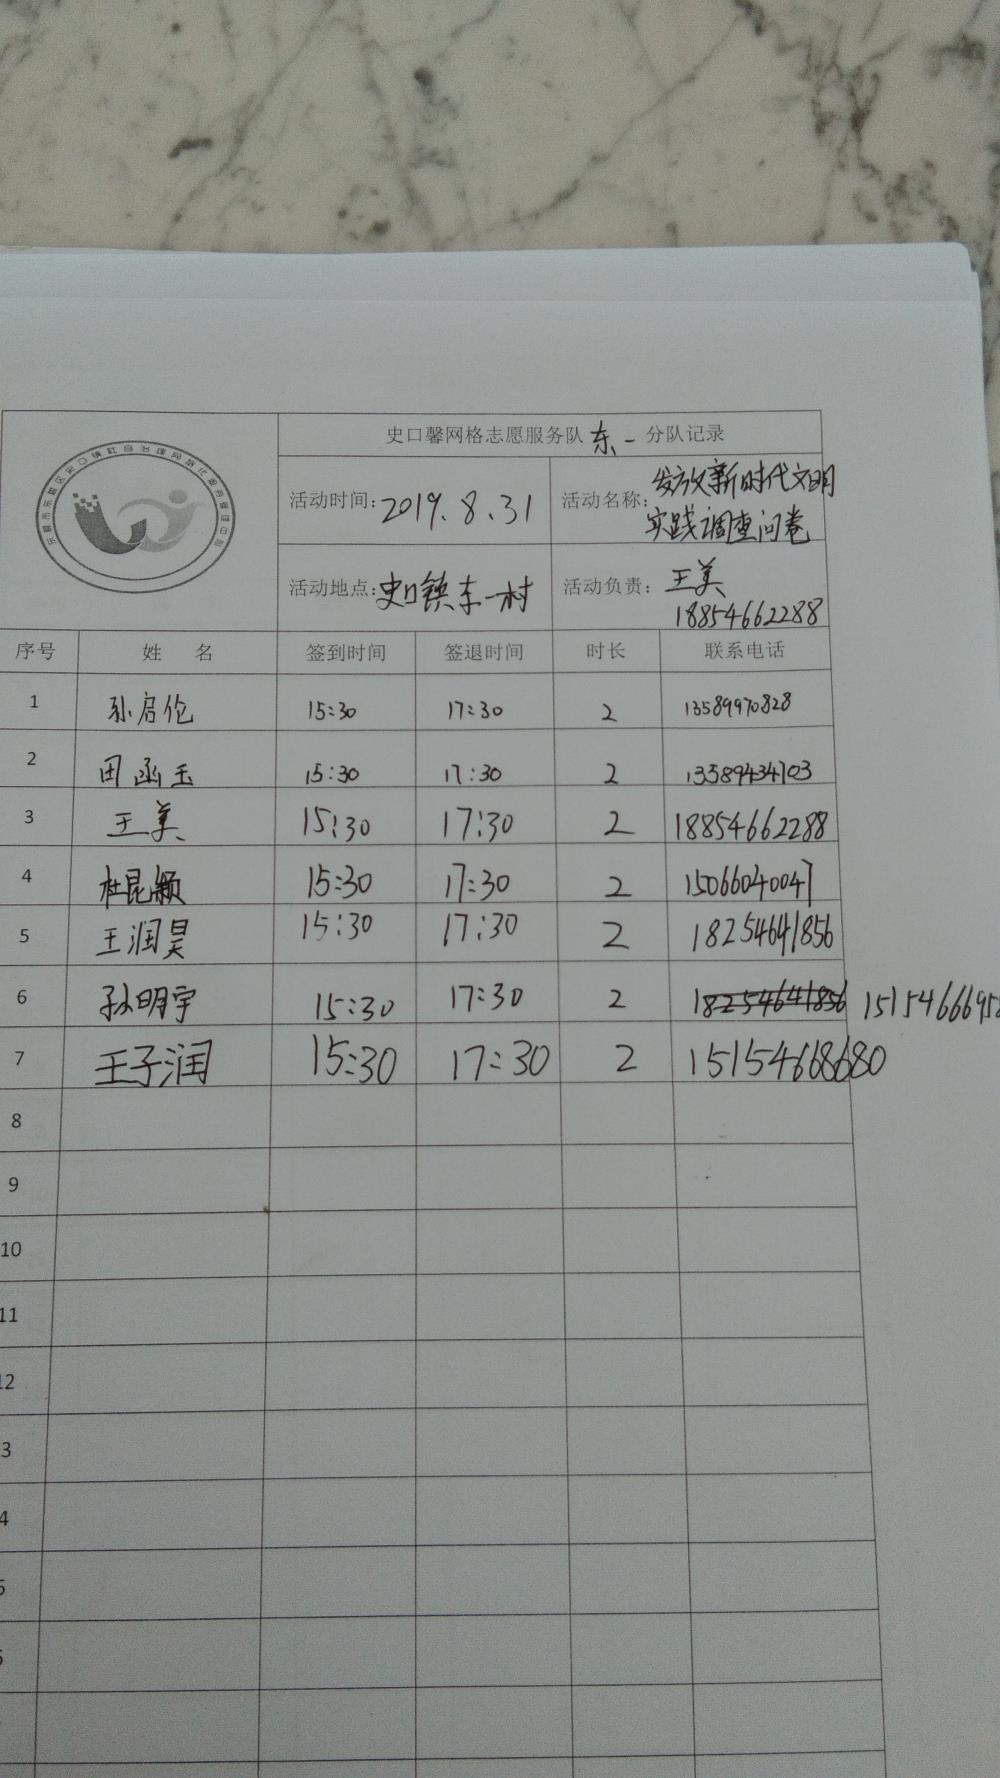 史口馨网格志愿服务队 东一 分队记录
活动时间：2019.8.31 活动名称：发放新时代文明
实践调查问卷
活动地点：史口镇东一村 活动负责：王美
18854662288
序号 姓 名 签到时间 签退时间 时长 联系电话
1 孙启伦 15:30 17:30 2 13589970828
2 田函玉 15:30 17:30 2 13589434703
3 王美 15:30 17:30 2 18854662288
4 杜昆颖 15:30 17:30 2 15066040047
5 王润昊 15:30 17:30 2 18254641856
6 孙明宇 15:30 17:30 2 18254641856 1515466695
7 王子润 15:30 17:30 2 15154668680
8
9
10
11
12
3
4
5